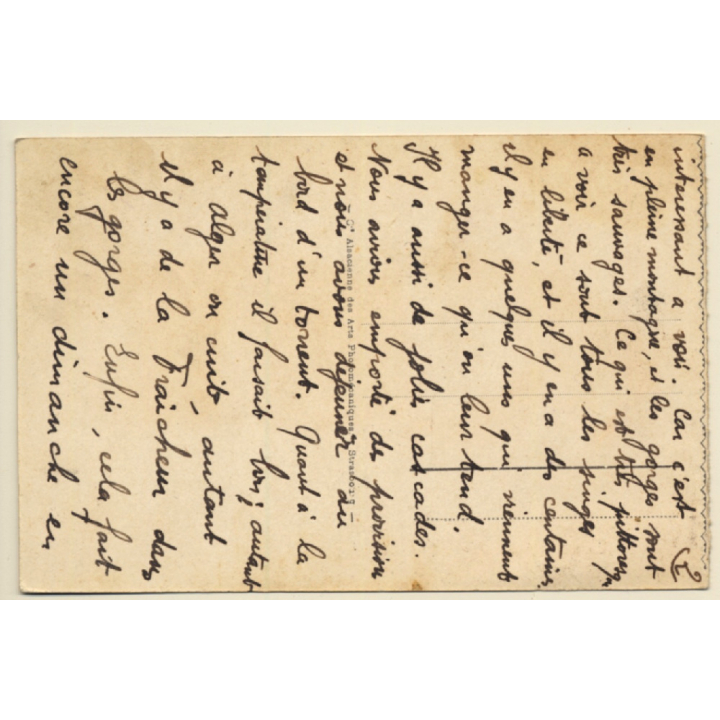 interessant a voir. Car c'est
en pleine montagne, et les gorges sont
très sauvages. Ce qui est très pittoresque
a voir ce sont tous les singes
en liberté, et il y en a des centaines,
il y en a quelques uns qui viennent
manger ce qu'on leur tend.
Il y a aussi de jolies cascades.
Nous avions emporté des provisions
et nous avons déjeuner au
bord d'un torrent. Quant à la
température il faisait bon; autant
à Alger on cuit, autant
il y a de la fraîcheur dans
les gorges. Enfin, cela fait
encore un dimanche en
2
Cie Alsacienne des Arts Photomécaniques, Strasbourg